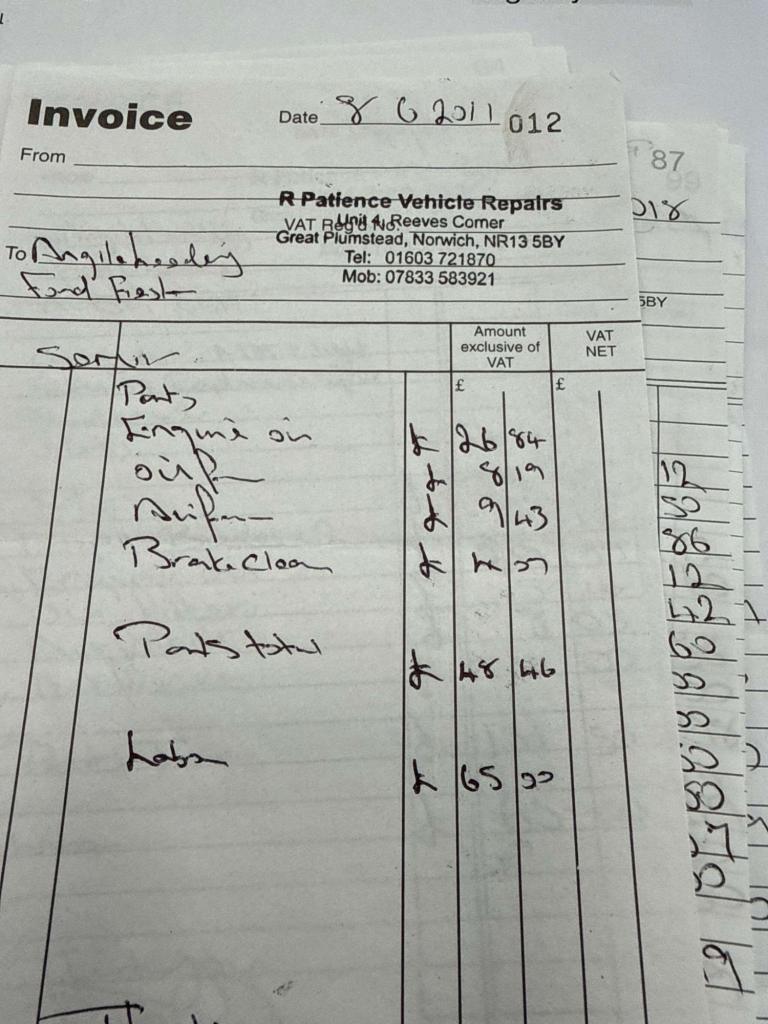 Invoice
Date 8 6 2011 012
From
R Patience Vehicle Repairs
VAT Reg'd No.
Unit 4, Reeves Corner
Great Plumstead, Norwich, NR13 5BY
Tel: 01603 721870
Mob: 07833 583921
To
Ford Fiesta
Amount exclusive of VAT
VAT NET
£ £
Parts
Engine oil £ 26 84
£ 8 19
£ 9 43
Brake Clean £ 4 00
Parts total
£ 48 46
Labour
£ 65 00
87
018
5BY
12
50
86
12
42
60